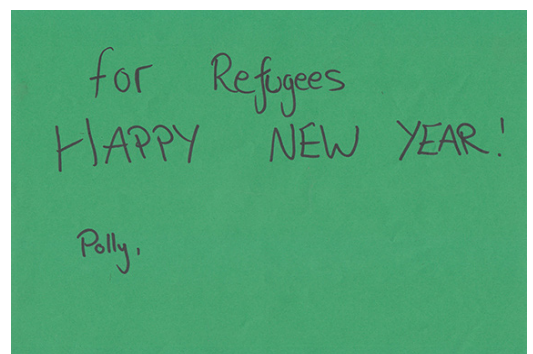 for Refugees
HAPPY NEW YEAR!
Polly,